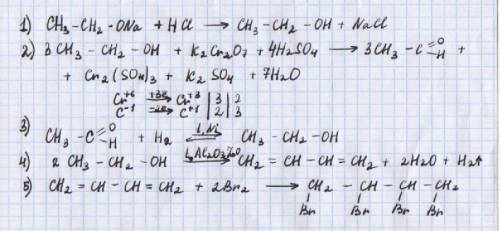 1) CH3-CH2-ONa + HCl → CH3-CH2-OH + NaCl
2) 3CH3-CH2-OH + K2Cr2O7 + 4H2SO4 → 3CH3-C=O H +
+ Cr2(SO4)3 + K2SO4 + 7H2O
Cr+6 +3e → Cr+3 | 3 | 2
C-1 -2e → C+1 | 2 | 3
3) CH3-C=O H + H2 t,Ni ⇌ CH3-CH2-OH
4) 2CH3-CH2-OH t,Al2O3,ZnO → CH2=CH-CH=CH2 + 2H2O + H2↑
5) CH2=CH-CH=CH2 + 2Br2 → CH2-CH-CH-CH2
Br Br Br Br